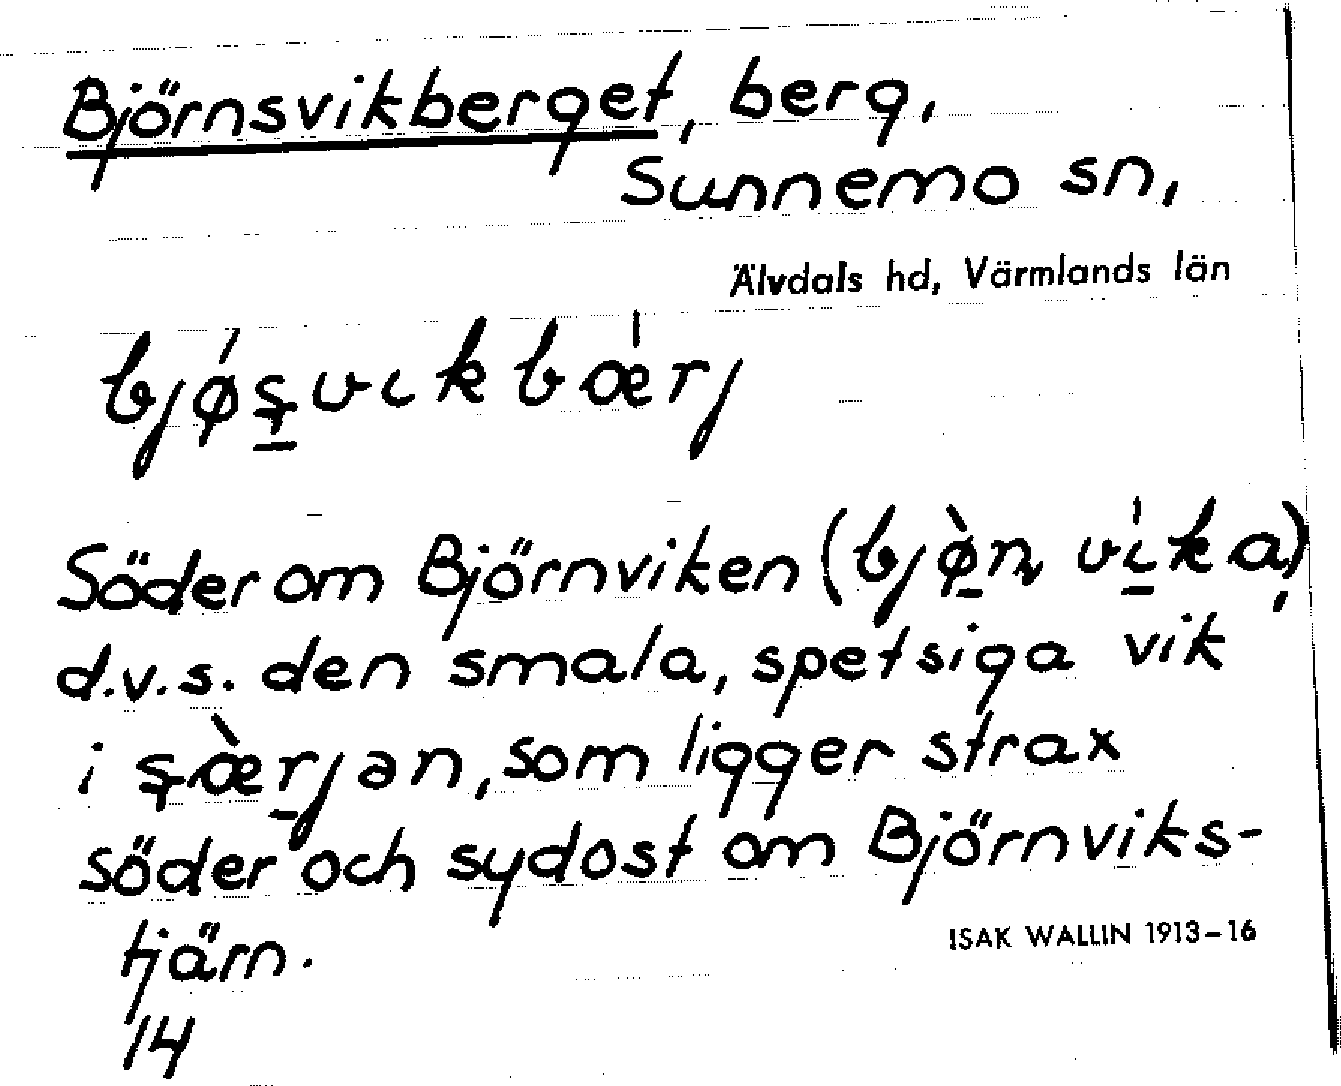 Björnsvikberget, berg,
Sunnemo sn,
Älvdals hd, Värmlands län
bjǿs̠vɩkbǽrj
Söder om Björnviken (bjø̠̀n vɩ̠́ka),
d.v.s. den smala, spetsiga vik
i sæ̀r̠jan, som ligger strax
söder och sydost om Björnviks-
tjärn.
ISAK WALLIN 1913–16
14